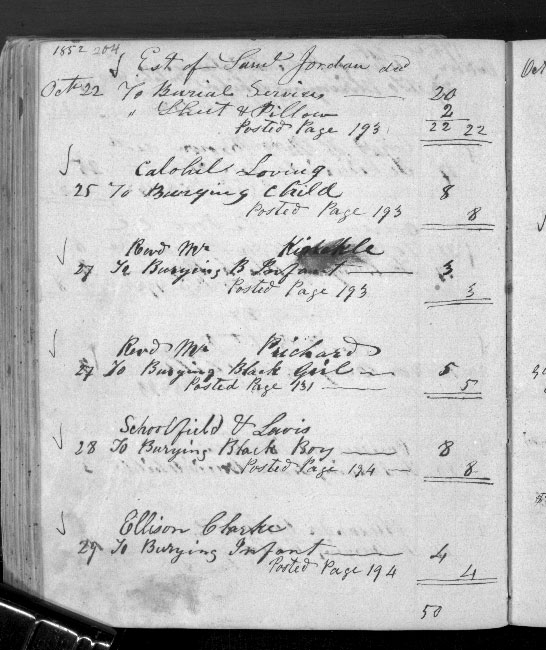 1852 204
Est of Saml Jordan dcd
Octr 22 To Burial Services 20
" Sheet & Pillow 2
Posted Page 193 22 22
Calohil Loving
25 To Burying Child 8
Posted Page 193 8
Revd Mr
27 To Burying B Infant 3
Posted Page 193 3
Revd Mr Prichard
27 To Burying Black Girl 5
Posted Page 131 5
Schoolfield & Lavis
28 To Burying Black Boy 8
Posted Page 134 8
Ellison Clarke
29 To Burying Infant 4
Posted Page 194 4
50
Oct